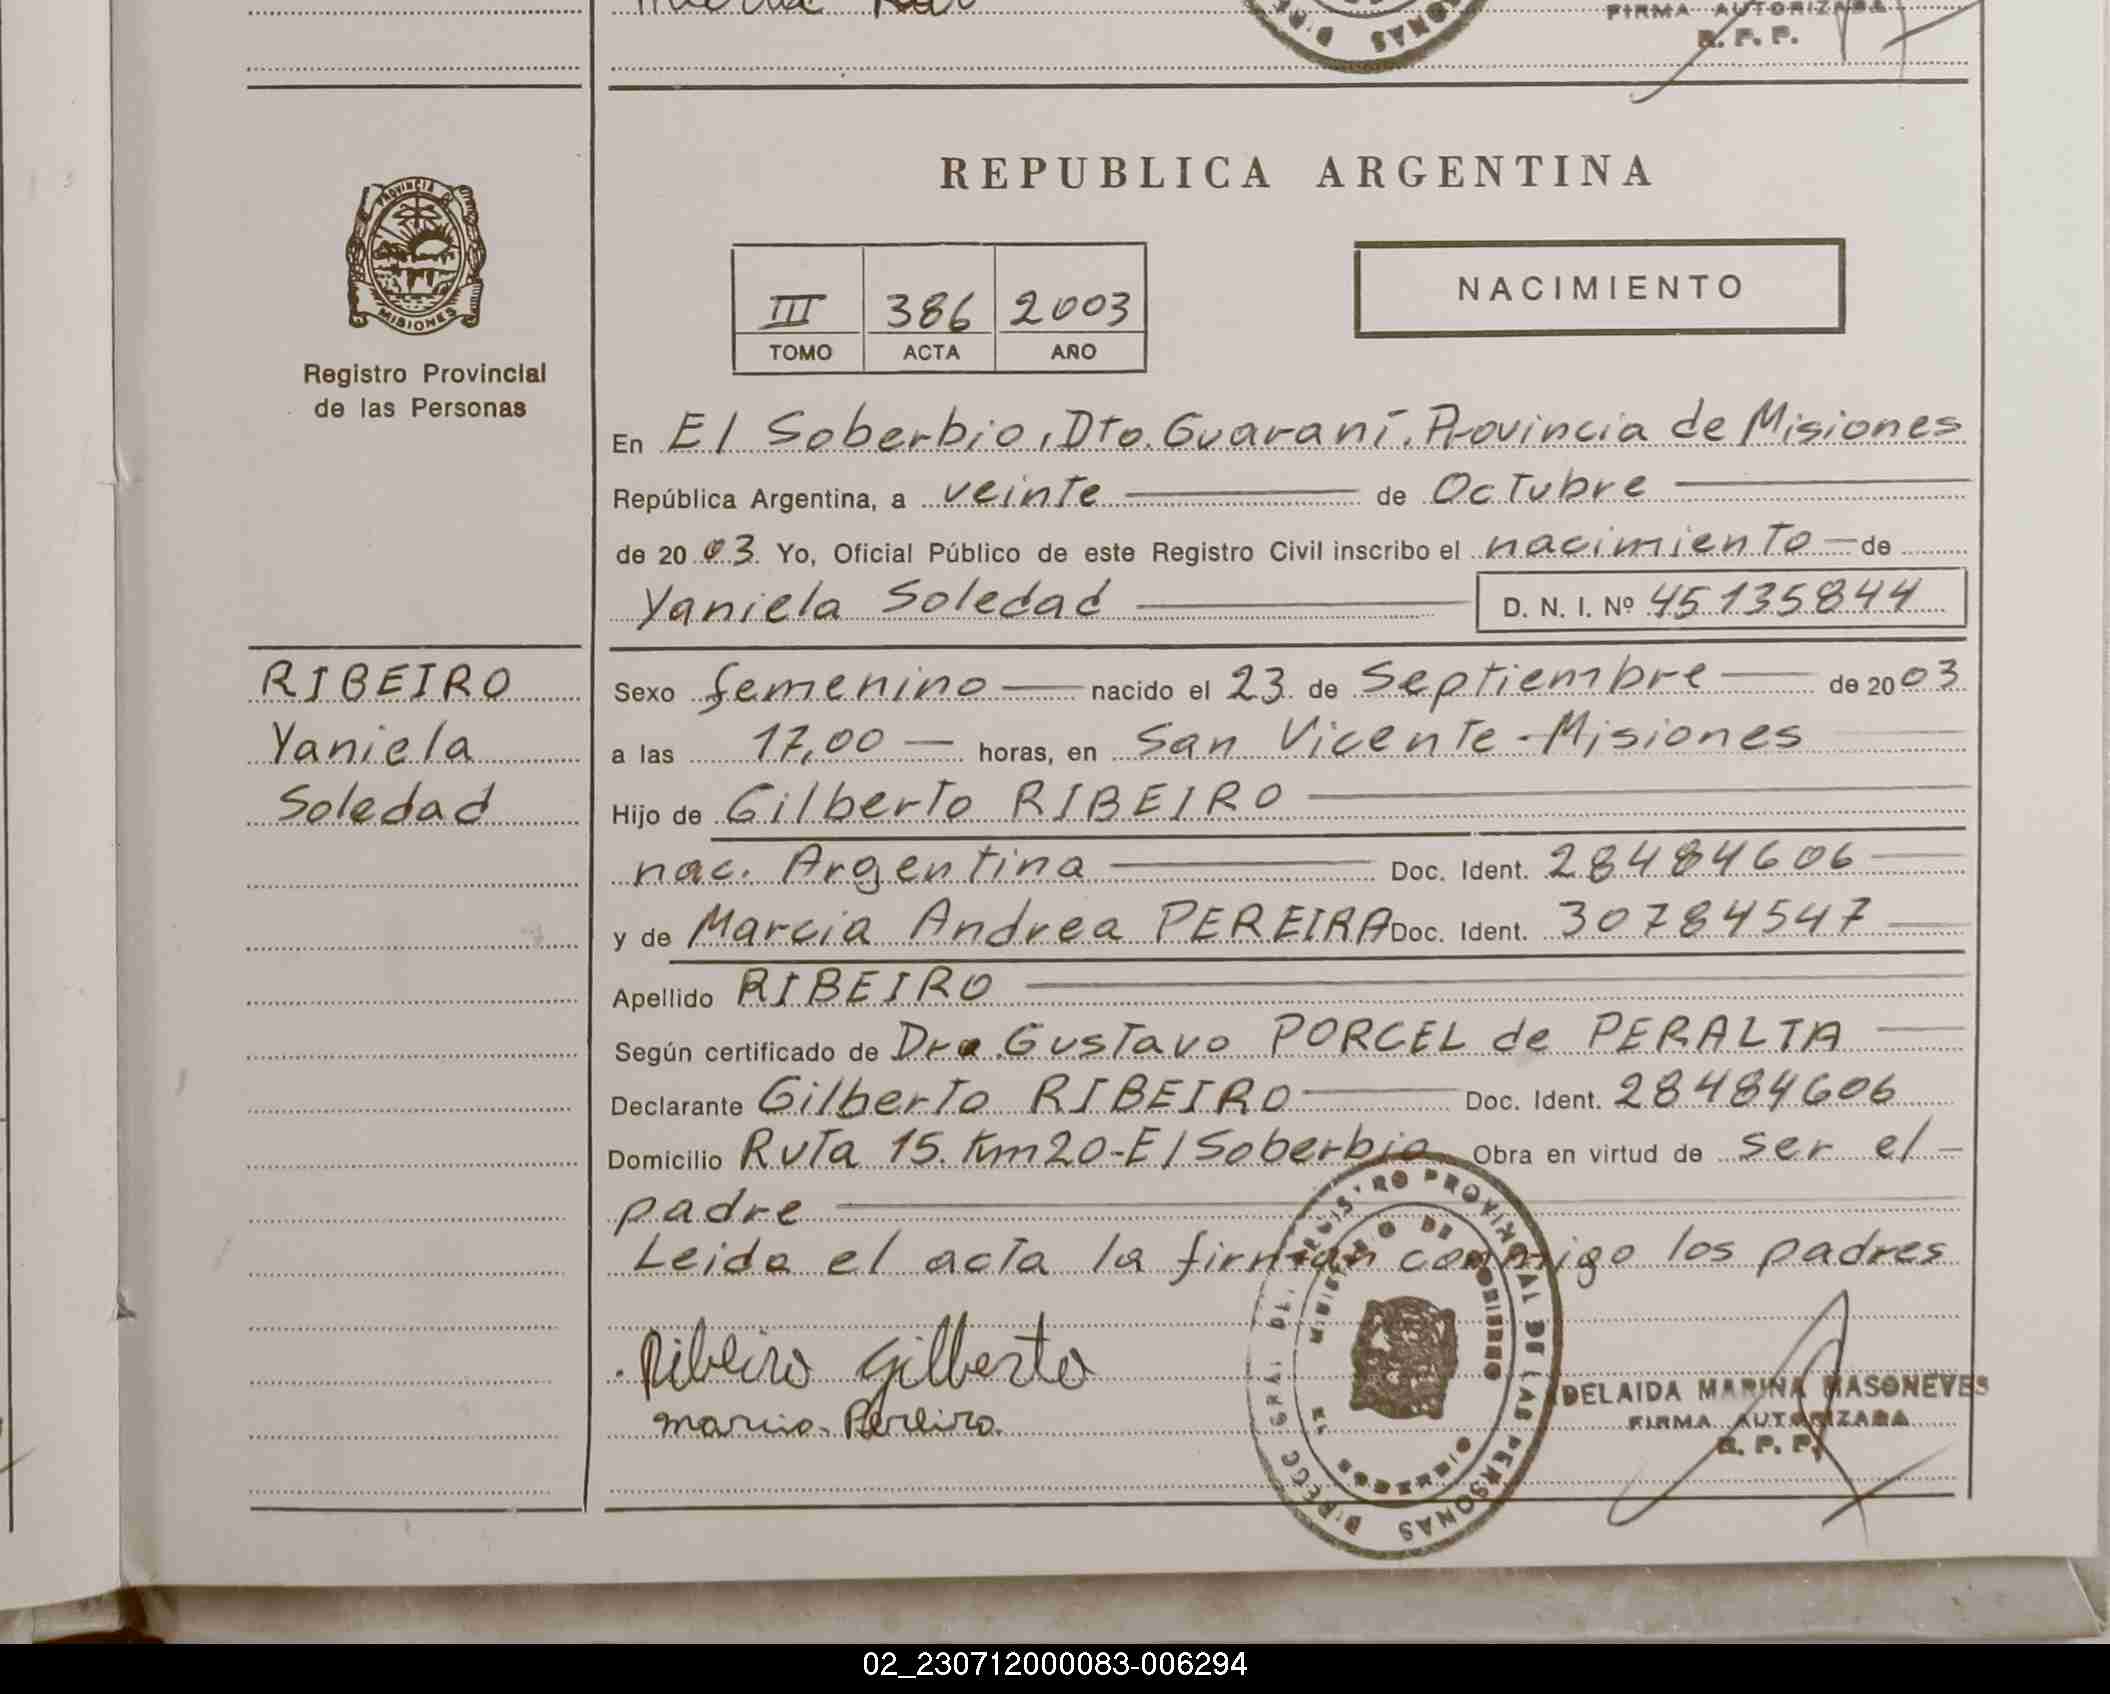 FIRMA AUTORIZADA
R. P. P.
PROVINCIA
MISIONES
Registro Provincial
de las Personas
REPUBLICA ARGENTINA
III 386 2003
TOMO ACTA AÑO
NACIMIENTO
En El Soberbio, Dto. Guaraní, Provincia de Misiones
República Argentina, a veinte de Octubre
de 2003 Yo, Oficial Público de este Registro Civil inscribo el nacimiento de
Yaniela Soledad D. N. I. Nº 45135844
RIBEIRO
Yaniela
Soledad
Sexo femenino nacido el 23 de Septiembre de 2003
a las 17,00 horas, en San Vicente - Misiones
Hijo de Gilberto RIBEIRO
nac. Argentina Doc. Ident. 28484606
y de Marcia Andrea PEREIRA Doc. Ident. 30784547
Apellido RIBEIRO
Según certificado de Dro. Gustavo PORCEL de PERALTA
Declarante Gilberto RIBEIRO Doc. Ident. 28484606
Domicilio Ruta 15. Km20-El Soberbio Obra en virtud de ser el
padre
Leida el acta la firman conmigo los padres
Ribeiro Gilberto
Marcia Pereira
DIRECC. GRAL. DEL REGISTRO PROVINCIAL DE LAS PERSONAS
MINISTERIO DE GOBIERNO
EL SOBERBIO
ADELAIDA MARINA MASONEVES
FIRMA AUTORIZADA
R. P. P.
02_230712000083-006294